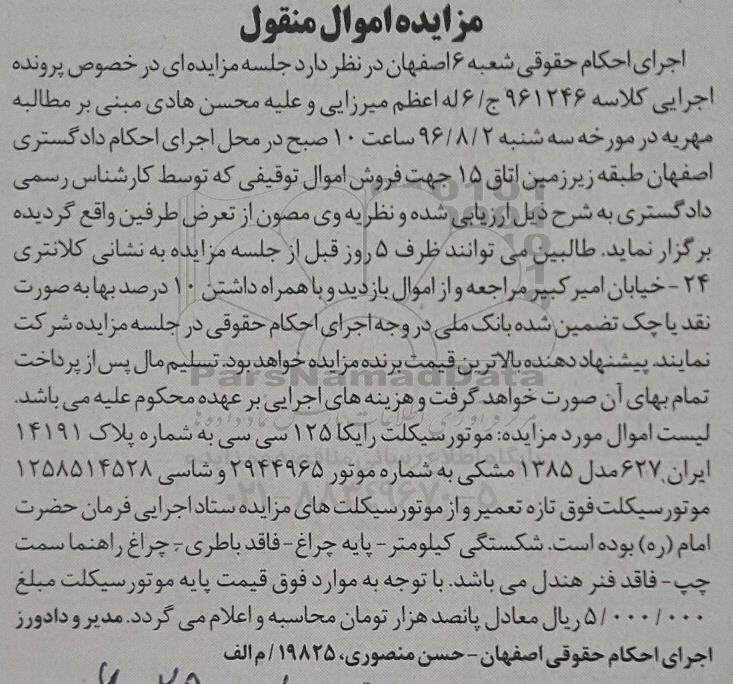 مزایده اموال منقول
اجرای احکام حقوقی شعبه ۶ اصفهان در نظر دارد جلسه مزایده ای در خصوص پرونده
اجرایی کلاسه ۹۶۱۲۴۶ ج/۶ له اعظم میرزایی و علیه محسن هادی مبنی بر مطالبه
مهریه در مورخه سه شنبه ۹۶/۸/۲ ساعت ۱۰ صبح در محل اجرای احکام دادگستری
اصفهان طبقه زیرزمین اتاق ۱۵ جهت فروش اموال توقیفی که توسط کارشناس رسمی
دادگستری به شرح ذیل ارزیابی شده و نظریه وی مصون از تعرض طرفین واقع گردیده
برگزار نماید. طالبین می توانند ظرف ۵ روز قبل از جلسه مزایده به نشانی کلانتری
۲۴ - خیابان امیرکبیر مراجعه و از اموال بازدید و با همراه داشتن ۱۰ درصد بها به صورت
نقد یا چک تضمین شده بانک ملی در وجه اجرای احکام حقوقی در جلسه مزایده شرکت
نمایند. پیشنهاد دهنده بالاترین قیمت برنده مزایده خواهد بود. تسلیم مال پس از پرداخت
ParsNamadData
تمام بهای آن صورت خواهد گرفت و هزینه های اجرایی بر عهده محکوم علیه می باشد.
لیست اموال مورد مزایده: موتورسیکلت رایکا ۱۲۵ سی سی به شماره پلاک ۱۴۱۹۱
ایران ۶۲۷ مدل ۱۳۸۵ مشکی به شماره موتور ۲۹۴۴۹۶۵ و شاسی ۱۲۵۸۵۱۴۵۲۸
۰۲۱-۸۸۳۴۹۶۷۰-۵
موتورسیکلت فوق تازه تعمیر و از موتورسیکلت های مزایده ستاد اجرایی فرمان حضرت
امام (ره) بوده است. شکستگی کیلومتر - پایه چراغ - فاقد باطری - چراغ راهنما سمت
چپ - فاقد فنر هندل می باشد. با توجه به موارد فوق قیمت پایه موتورسیکلت مبلغ
۵/۰۰۰/۰۰۰ ریال معادل پانصد هزار تومان محاسبه و اعلام می گردد. مدیر و دادورز
اجرای احکام حقوقی اصفهان - حسن منصوری، ۱۹۸۲۵/م الف